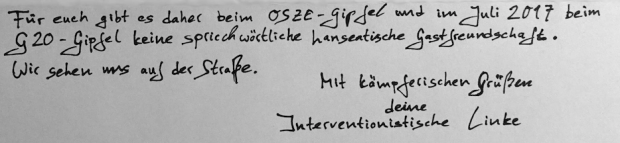 Für euch gibt es daher beim OSZE-Gipfel und im Juli 2017 beim
G20-Gipfel keine sprichwörtliche hanseatische Gastfreundschaft.
Wir sehen uns auf der Straße.
Mit kämpferischen Grüßen
deine
Interventionistische Linke